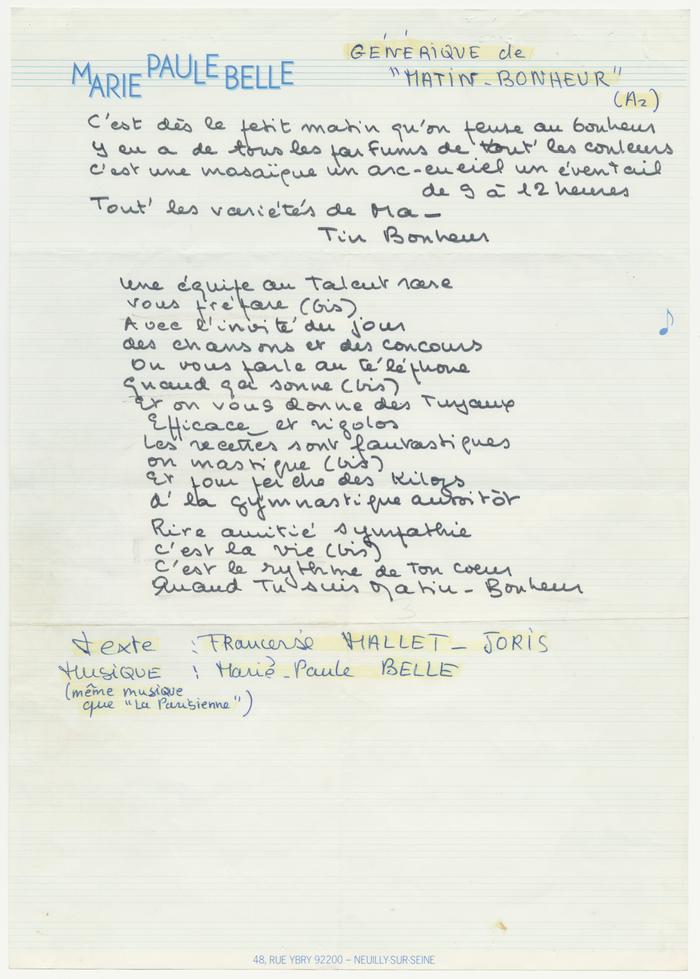 MARIE PAULE BELLE
GÉNÉRIQUE de
"MATIN-BONHEUR"
(A2)
C'est dès le petit matin qu'on pense au bonheur
Y en a de tous les parfums de tout' les couleurs
C'est une mosaïque un arc-en ciel un éventail
de 9 à 12 heures
Tout' les variétés de Ma-
Tin Bonheur
Une équipe au Talent rare
vous prépare (bis)
Avec l'invité du jour
des chansons et des concours
On vous parle au téléphone
Quand ça sonne (bis)
Et on vous donne des Tuyaux
Efficace_ et rigolos
Les recettes sont fantastiques
on mastique (bis)
Et pour perdre des Kilogs
d' la gymnastique aussitôt
Rire amitié sympathie
C'est la vie (bis)
C'est le rythme de Ton coeur
Quand Tu suis Matin-Bonheur
Texte : Françoise MALLET-JORIS
MUSIQUE : Marie-Paule BELLE
(même musique
que "La Parisienne")
48, RUE YBRY 92200 – NEUILLY-SUR-SEINE